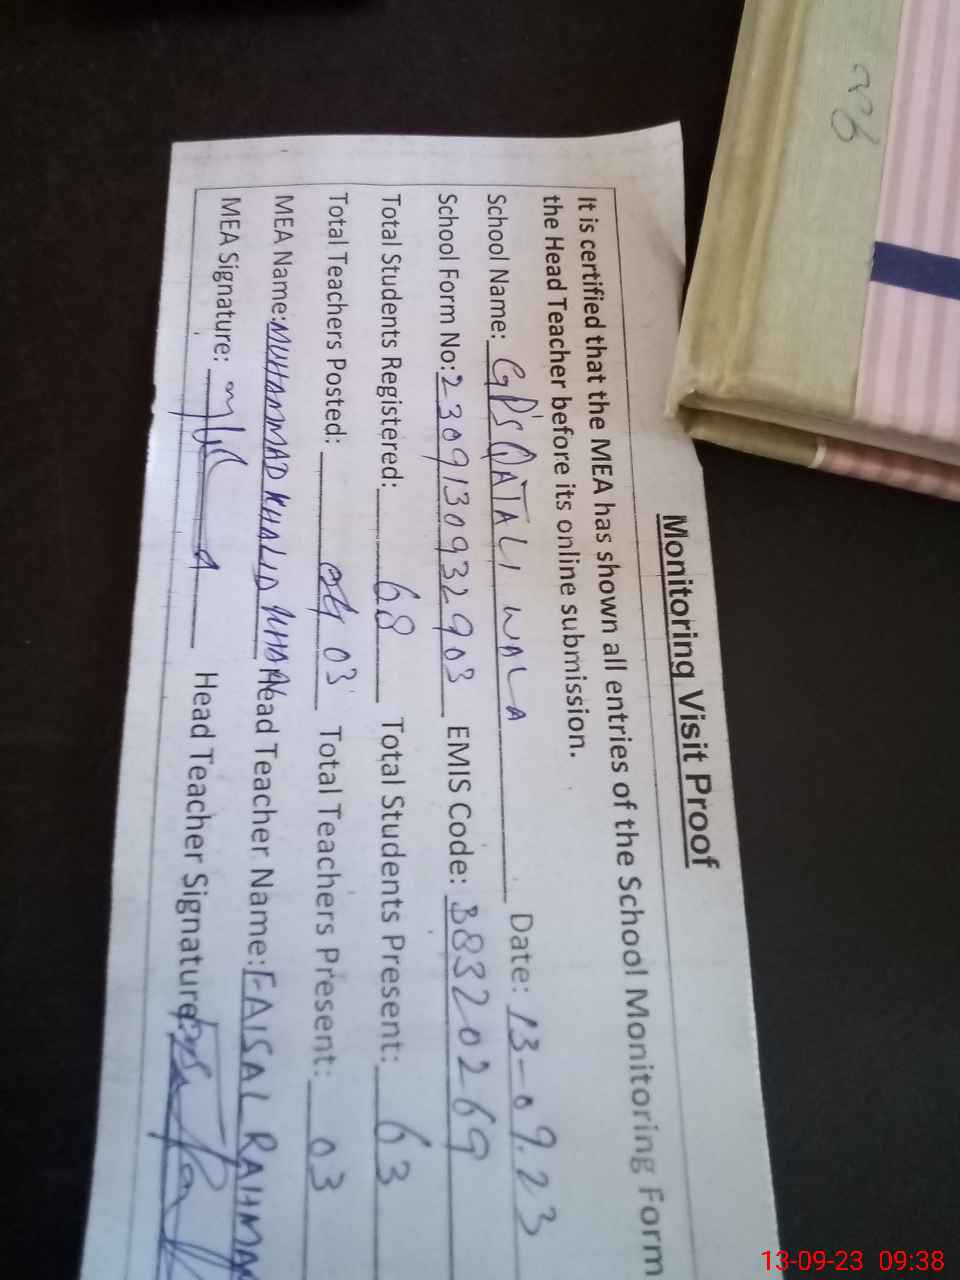 Monitoring Visit Proof
It is certified that the MEA has shown all entries of the School Monitoring Form
the Head Teacher before its online submission.
School Name: GPS QATALI WALA Date: 13-09.23
School Form No: 2309130932903 EMIS Code: 38320269
Total Students Registered: 68 Total Students Present: 63
Total Teachers Posted: 03 Total Teachers Present: 03
MEA Name: MUHAMMAD KHALID KHAN Head Teacher Name: FAISAL RAHMA
MEA Signature: Head Teacher Signature:
13-09-23 09:38